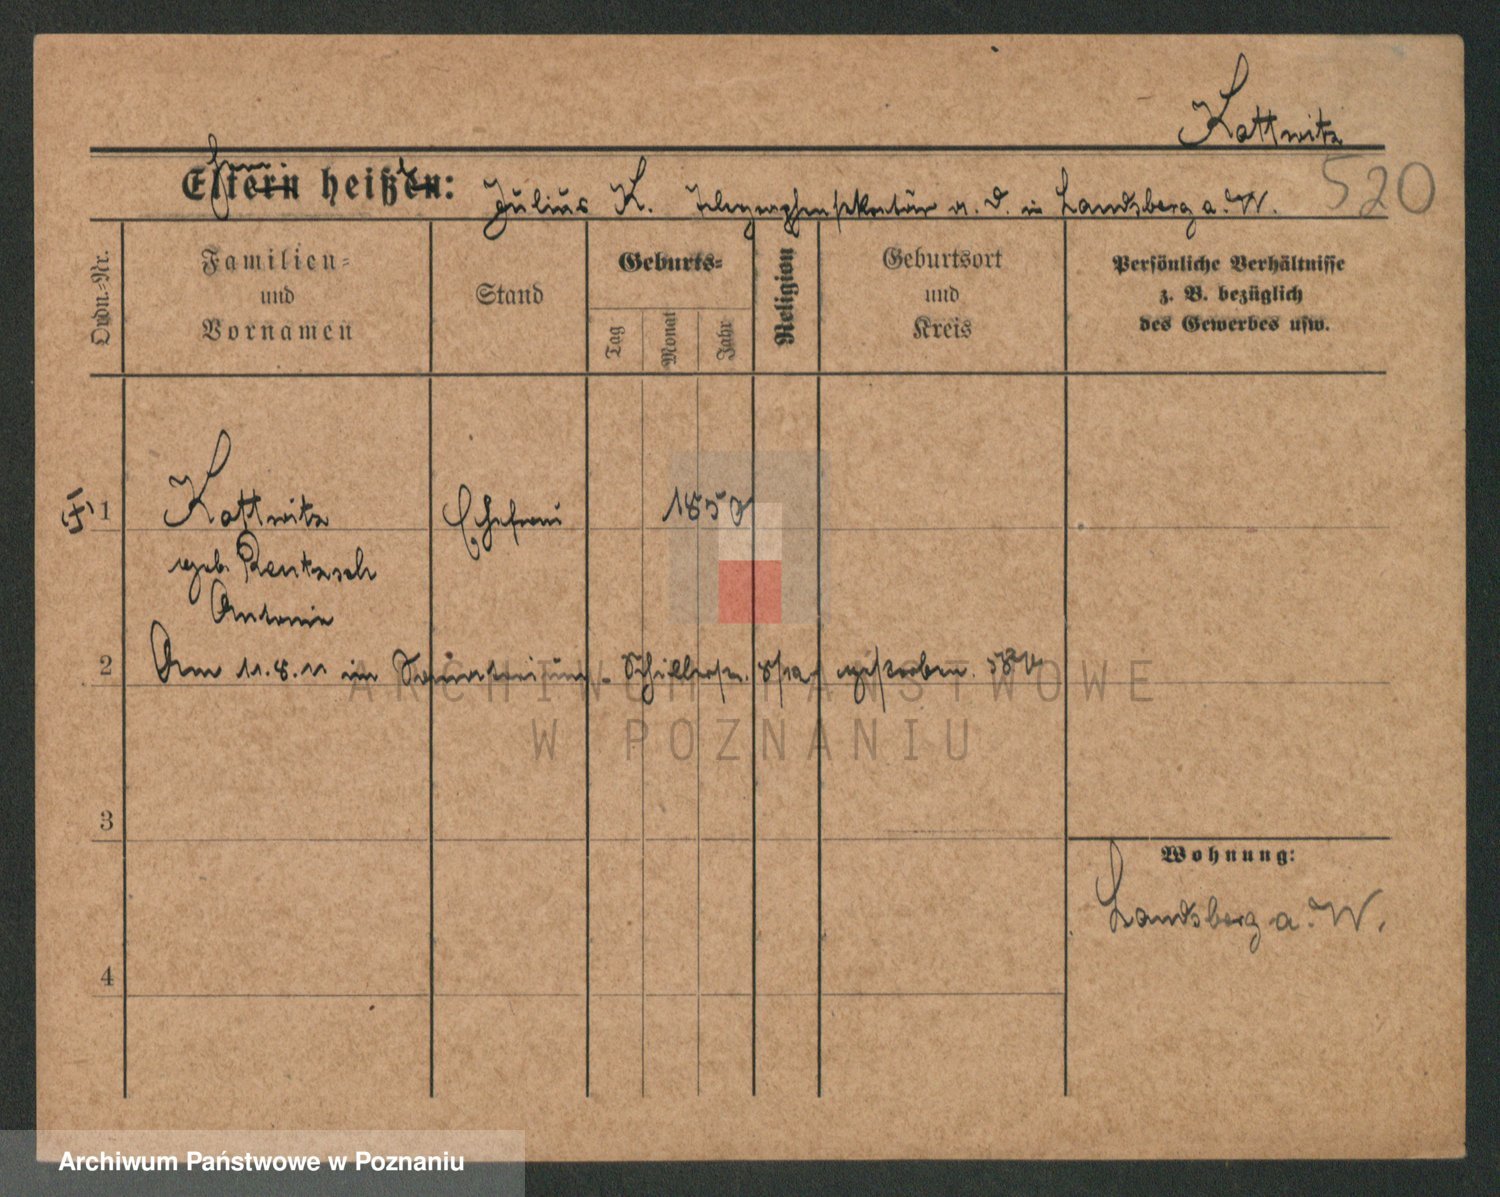 Kottwitz
Eltern heißen: Julius K. Telegraphensekretär a. D. in Landsberg a. W.
520
Ordn.-Nr.
Familien-
und
Vornamen
Stand
Geburts-
Tag
Monat
Jahr
Religion
Geburtsort
und
Kreis
Persönliche Verhältnisse
z. B. bezüglich
des Gewerbes usw.
1 Kottwitz Ehefrau 1850
geb. Rentzsch
Antonie
2 Am 11.8.11 im Sanatorium - Schillerstr. gestorben.
ARCHIWUM PAŃSTWOWE
W POZNANIU
3
Wohnung:
Landsberg a. W.
4
Archiwum Państwowe w Poznaniu